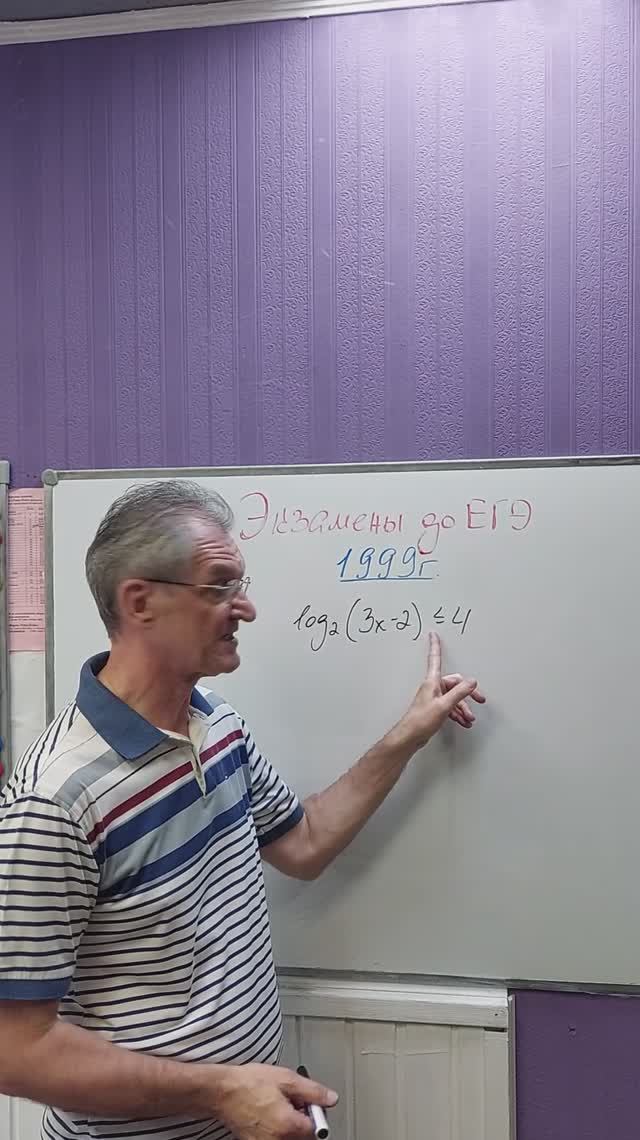 Экзамены до ЕГЭ
1999г.
log₂(3x-2) ≤ 4